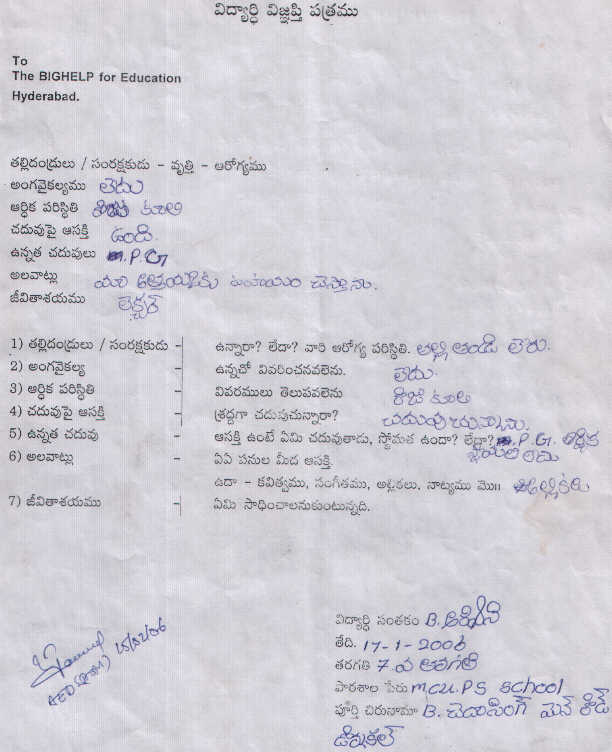 విద్యార్థి విజ్ఞప్తి పత్రము
To
The BIGHELP for Education
Hyderabad.
తల్లిదండ్రులు / సంరక్షకుడు - వృత్తి - ఆరోగ్యము
అంగవైకల్యము లేదు
ఆర్థిక పరిస్థితి కూలి
చదువుపై ఆసక్తి ఉంది.
ఉన్నత చదువులు P.G
అలవాట్లు చేస్తాను.
జీవితాశయము లెక్చరర్
1) తల్లిదండ్రులు / సంరక్షకుడు - ఉన్నారా? లేదా? వారి ఆరోగ్య పరిస్థితి. తల్లి తండ్రి లేరు.
2) అంగవైకల్య - ఉన్నచో వివరించనవలెను. లేదు.
3) ఆర్థిక పరిస్థితి - వివరములు తెలుపవలెను కూలి
4) చదువుపై ఆసక్తి - శ్రద్ధగా చదువుచున్నారా? చదువుచున్నాను.
5) ఉన్నత చదువు - ఆసక్తి ఉంటే ఏమి చదువుతాడు, స్తోమత ఉందా? లేదా? P.G. ఆర్థిక
6) అలవాట్లు - ఏఏ పనుల మీద ఆసక్తి.
ఉదా - కవిత్వము, సంగీతము, అల్లికలు. నాట్యము మొ॥ అల్లికలు
7) జీవితాశయము - ఏమి సాధించాలనుకుంటున్నది.
15/02/06
విద్యార్థి సంతకం B.
తేది. 17-1-2006
తరగతి 7 వ తరగతి
పాఠశాల పేరు M.C.U.P.S School
పూర్తి చిరునామా B. మెన్ రోడ్